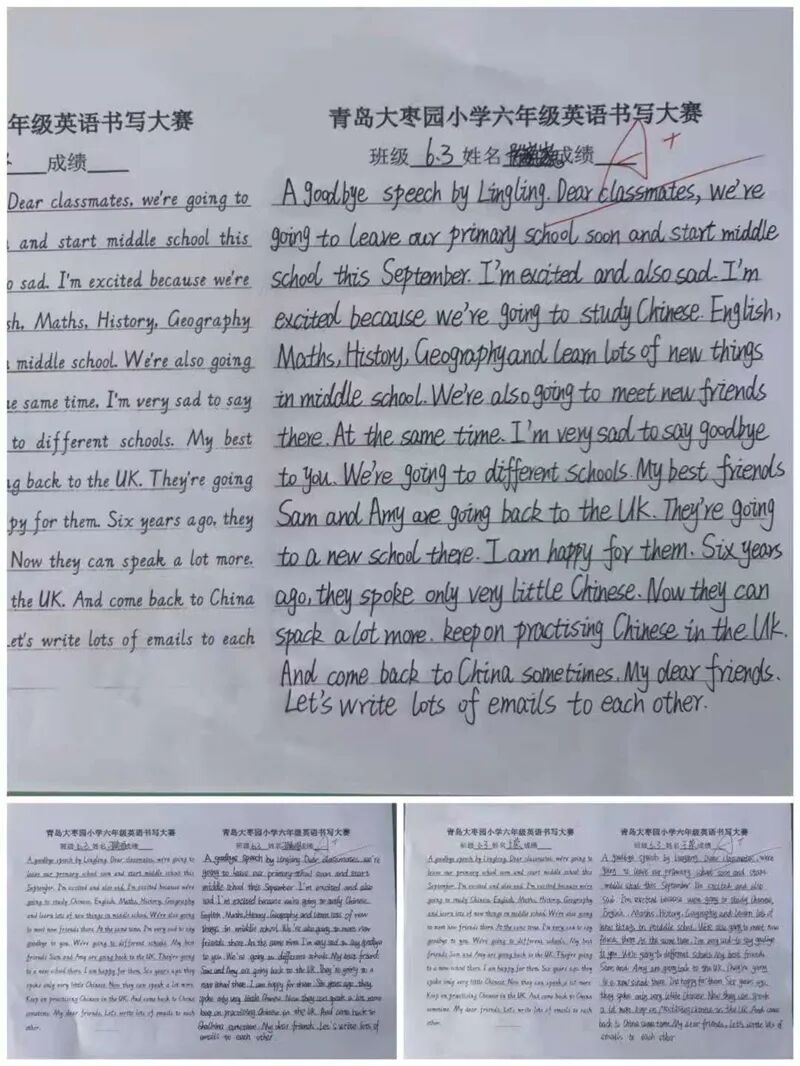 年级英语书写大赛
成绩
Dear classmates, we're going to
and start middle school this
o sad. I'm excited because we're
sh, Maths, History, Geography
middle school. We're also going
e same time. I'm very sad to say
to different schools. My best
ng back to the UK. They're going
py for them. Six years ago, they
Now they can speak a lot more.
the UK. And come back to China
Let's write lots of emails to each
青岛大枣园小学六年级英语书写大赛
班级 6.3 姓名 成绩 A+
A goodbye speech by Lingling. Dear classmates, we're
going to leave our primary school soon and start middle
school this September. I'm excited and also sad. I'm
excited because we're going to study Chinese. English,
Maths, History, Geography and learn lots of new things
in middle school. We're also going to meet new friends
there. At the same time. I'm very sad to say goodbye
to you. We're going to different schools. My best friends
Sam and Amy are going back to the UK. They're going
to a new school there. I am happy for them. Six years
ago, they spoke only very little Chinese. Now they can
spack a lot more. keep on practising Chinese in the UK.
And come back to China sometimes. My dear friends.
Let's write lots of emails to each other.
青岛大枣园小学六年级英语书写大赛
班级 6.3 姓名 成绩
A goodbye speech by Lingling. Dear classmates, we're going to
leave our primary school soon and start middle school this
September. I'm excited and also sad. I'm excited because we're going
to study Chinese, English, Maths, History, Geography
and learn lots of new things in middle school. We're also going
to meet new friends there. At the same time, I'm very sad to say
goodbye to you. We're going to different schools. My best
friends Sam and Amy are going back to the UK. They're going
to a new school there. I am happy for them. Six years ago, they
spoke only very little Chinese. Now they can speak a lot more.
Keep on practising Chinese in the UK. And come back to China
sometime. My dear friends, Let's write lots of emails to each
other.
青岛大枣园小学六年级英语书写大赛
班级 6.3 姓名 成绩
A goodbye speech by Lingling. Dear classmates, we're
going to leave our primary school soon and start
middle school this September. I'm excited and also
sad. I'm excited because we're going to study Chinese.
English, Maths, History, Geography and learn lots of new
things in middle school. We're also going to meet new
friends there. At the same time. I'm very sad to say goodbye
to you. We're going to different schools. My best friend
Sam and Amy are going back to the UK. They're going to a
new school there. I am happy for them. Six years ago, they
spoke only very little Chinese. Now they can speak a lot more
keep on practising Chinese in the UK. And come back to
China sometime. My dear friends. Let's write lots of
emails to each other
青岛大枣园小学六年级英语书写大赛
班级 6.3 姓名 成绩
A goodbye speech by Lingling. Dear classmates, we're going to
leave our primary school soon and start middle school this
September. I'm excited and also sad. I'm excited because we're going
to study Chinese, English, Maths, History, Geography
and learn lots of new things in middle school. We're also going
to meet new friends there. At the same time, I'm very sad to say
goodbye to you. We're going to different schools. My best
friends Sam and Amy are going back to the UK. They're going
to a new school there. I am happy for them. Six years ago, they
spoke only very little Chinese. Now they can speak a lot more.
Keep on practising Chinese in the UK. And come back to China
sometime. My dear friends, Let's write lots of emails to each
other.
青岛大枣园小学六年级英语书写大赛
班级 6.3 姓名 成绩
A goodbye speech by Lingling. Dear classmates, we're
going to leave our primary school soon and start
middle school this September. I'm excited and also
sad. I'm excited because we're going to study Chinese,
English, Maths, History, Geography and learn lots of
new things in middle school. We're also going to meet new
friends there. At the same time. I'm very sad to say goodbye
to you. We're going to different schools. My best friends
Sam and Amy are going back to the UK. They're going
to a new school there. I am happy for them. Six years ago,
they spoke only very little Chinese. Now they can speak
a lot more. keep on practising Chinese in the UK. And come
back to China sometime. My dear friends, Let's write lots of
emails to each other